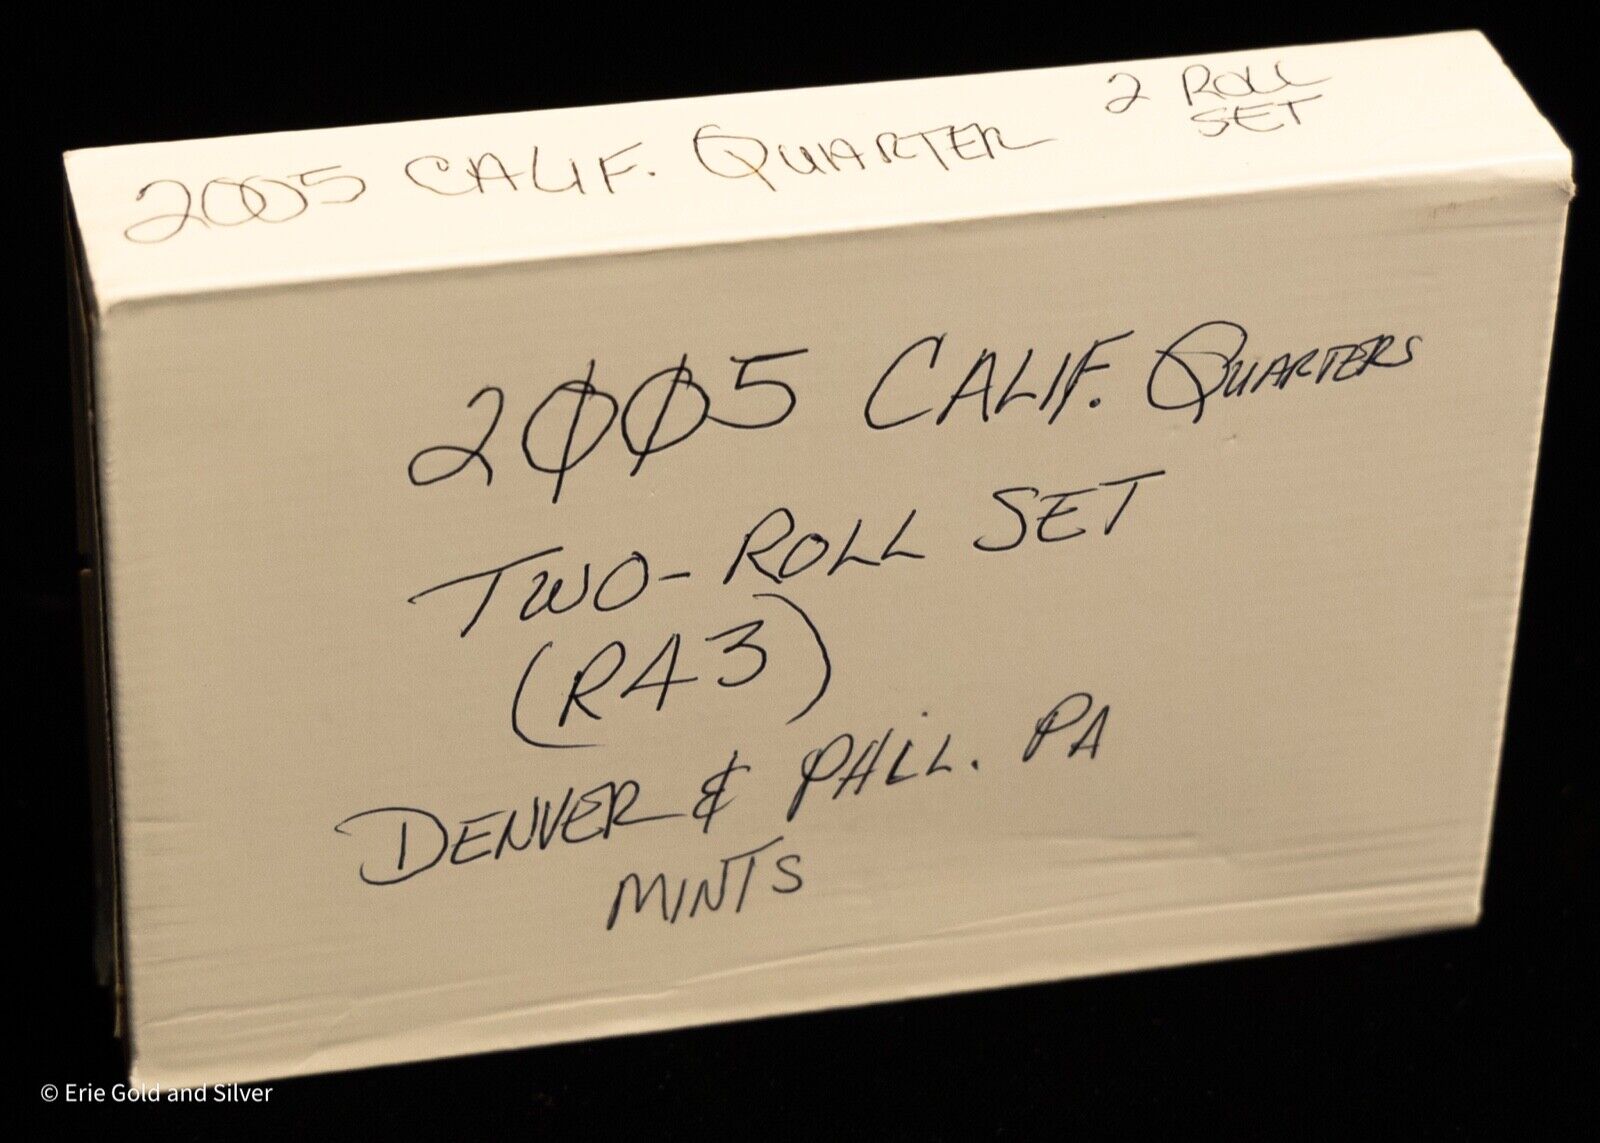 2005 CALIF. QUARTER 2 ROLL
SET
2005 CALIF. QUARTERS
TWO-ROLL SET
(R43)
DENVER & PHIL. PA
MINTS
© Erie Gold and Silver